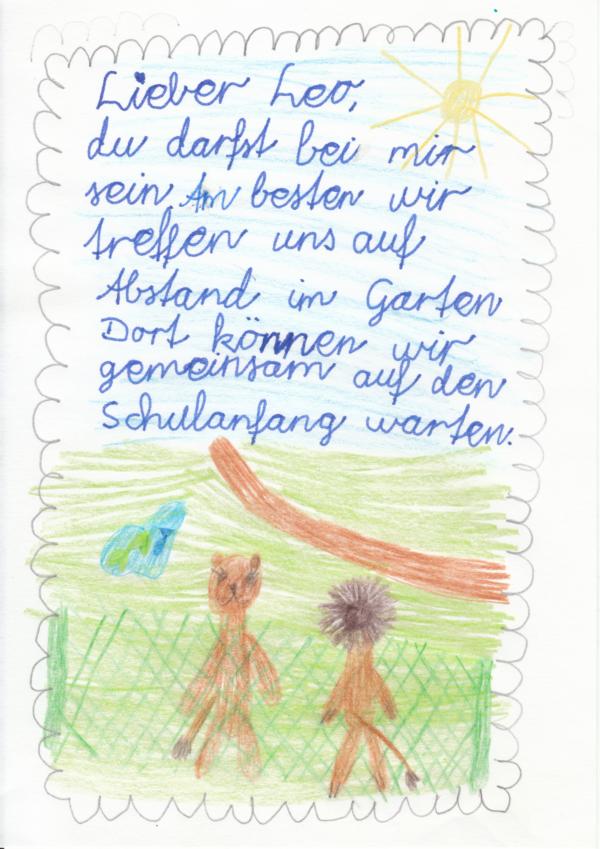 Lieber Leo,
du darfst bei mir
sein Am besten wir
treffen uns auf
Abstand im Garten
Dort können wir
gemeinsam auf den
Schulanfang warten.